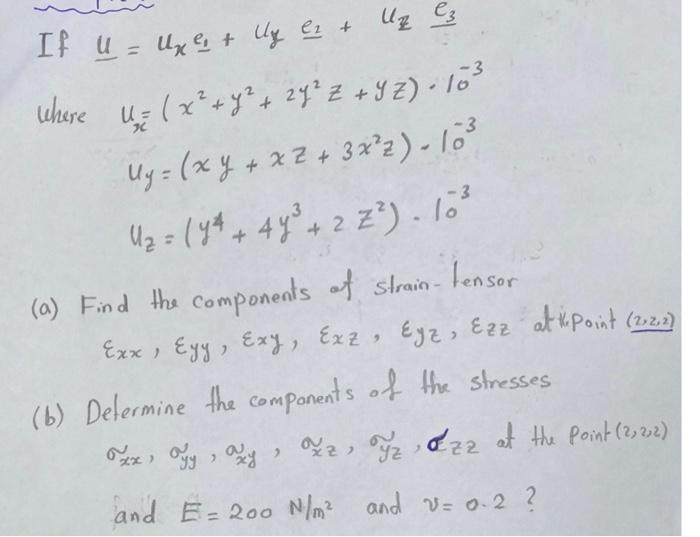 If u = uₓ e₁ + u_y e₂ + u_z e₃
where uₓ = (x² + y² + 2y² z + yz) · 10⁻³
u_y = (xy + xz + 3x²z) · 10⁻³
u_z = (y⁴ + 4y³ + 2 z²) · 10⁻³
(a) Find the components of strain-tensor
εxx, εyy, εxy, εxz, εyz, εzz at the point (2,2,2)
(b) Determine the components of the stresses
σxx, σyy, σxy, σxz, σyz, σzz at the point (2,2,2)
and E = 200 N/m² and ν = 0.2 ?